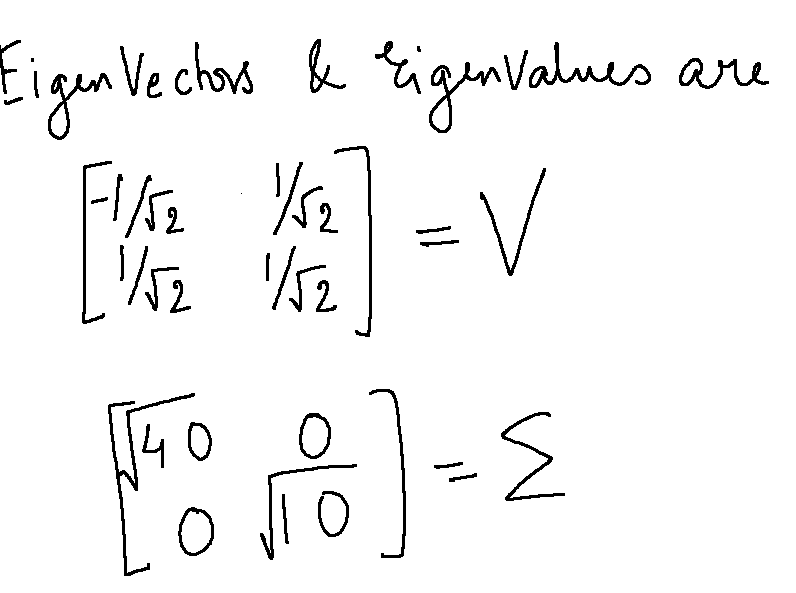 EigenVectors & EigenValues are
[-1/√2 1/√2
1/√2 1/√2] = V
[√40 0
0 √10] = Σ